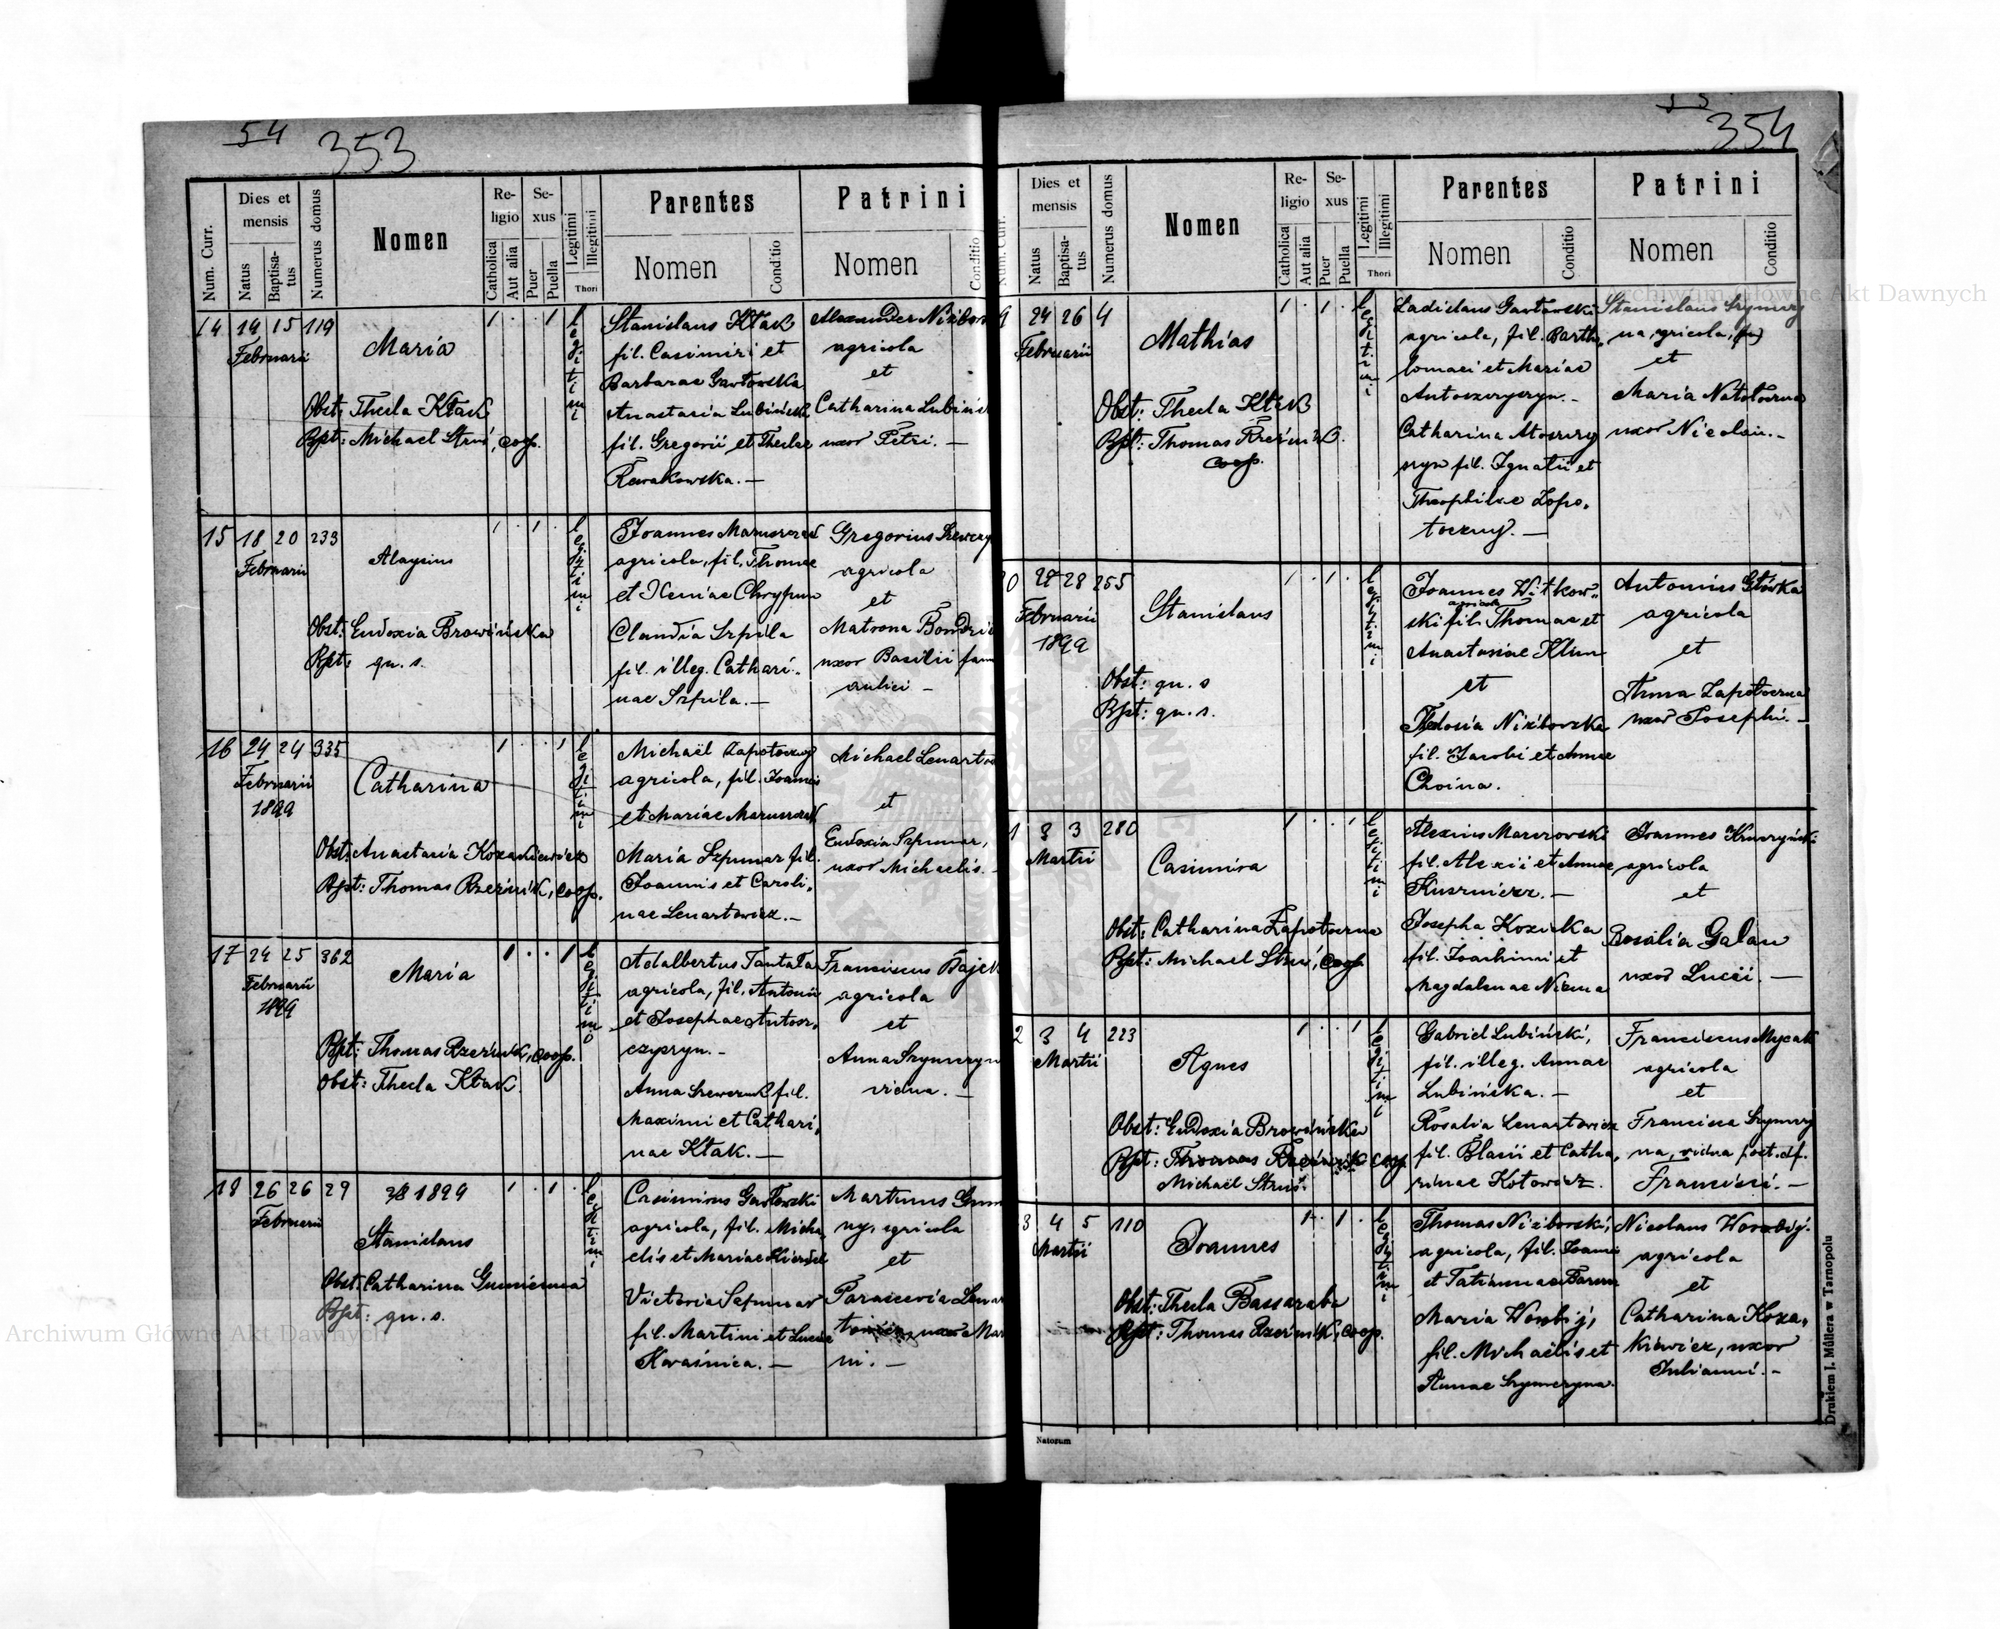 54 353
Num. Curr.
Dies et mensis
Natus
Baptisatus
Numerus domus
Nomen
Religio
Catholica
Aut alia
Sexus
Puer
Puella
Legitimi
Illegitimi
Thori
Parentes
Nomen
Conditio
Patrini
Nomen
Conditio
14 14 15 119
Februarii
Maria
Obst: Thecla Kłak
Bpt: Michael Struś, coop.
legitimi
Stanislaus Kłak
fil. Casimiri et
Barbarae Gawłowska
Anastasia Lubińska
fil. Gregorii et Theclae
Rewakowska. —
Alexander Niżbor
agricola
et
Catharina Lubińs
uxor Petri. —
15 18 20 233
Februarii
Aloysius
Obst: Eudoxia Browińska
Bpt: qu. s.
legitimi
Joannes Maruszczak
agricola, fil. Thomae
et Xeniae
Claudia Szpila
fil. illeg. Cathari-
nae Szpila. —
Gregorius Szewcz
agricola
et
Matrona
uxor Basilii fam
aulici —
16 24 24 335
Februarii
1899
Catharina
Obst: Anastasia Kozakiewicz
Bpt: Thomas Rzeźnik, coop.
legitimi
Michaël Zapotoczny
agricola, fil. Joannis
et Mariae Maruszczak
Maria Szpunar fil.
Joannis et Caroli-
nae Lenartowicz. —
Michael Lenarto
et
Eudoxia Szpunar,
uxor Michaelis. —
17 24 25 362
Februarii
1899
Maria
Bpt: Thomas Rzeźnik, coop.
Obst: Thecla Kłak.
Adalbertus Tantała
agricola, fil. Antonii
et Josephae Antosz-
czyszyn. —
Anna Szewczuk fil.
Maximi et Cathari-
nae Kłak. —
Franciscus Bajek
agricola
et
Anna Szymczyn
vidua. —
18 26 26 29
Februarii
1899
Stanislaus
Obst: Catharina
Bpt: qu. s.
legitimi
Casimirus Gawłowski
agricola, fil. Micha
elis et Mariae
Victoria Szpunar
fil. Martini et Luciae
Karaśnica. —
Martinus
ny, agricola
et
Parascevia Lenar
uxor Mar
ni. —
354
Dies et mensis
Natus
Baptisatus
Numerus domus
Nomen
Religio
Catholica
Aut alia
Sexus
Puer
Puella
Legitimi
Illegitimi
Thori
Parentes
Nomen
Conditio
Patrini
Nomen
Conditio
9 24 26 4
Februarii
Mathias
Obst: Thecla Kłak
Bpt: Thomas Rzeźnik
coop.
legitimi
Ladislaus Gawłowski
agricola, fil. Bartho
lomaei et Mariae
Antoszczyszyn. —
Catharina
fil. Ignatii et
Theophilae Zapo-
toczny. —
Stanislaus Szymczy
na, agricola,
et
Maria
uxor Nicolai. —
0 27 28 255
Februarii
1899
Stanislaus
Obst: qu. s
Bpt: qu. s.
legitimi
Joannes Witkow-
agricola
ski fil. Thomae et
Anastasiae Klim
et
Thedosia Niżborska
fil. Jacobi et Annae
Choina.
Antonius Główka
agricola
et
Anna Zapotoczna
uxor Josephi. —
1 3 3 280
Martii
Casimira
Obst: Catharina Zapotoczna
Bpt: Michael Struś, coop
legitimi
Alexius Marczowski
fil. Alexii et Annae
Kuszmierz. —
Josepha Kozicka
fil. Joachimi et
Magdalenae
Joannes Kruczyński
agricola
et
Rosalia Galan
uxor Lucii. —
2 3 4 223
Martii
Agnes
Obst: Eudoxia Browińska
Bpt: Thomas Rzeźnik coop.
Michaël Struś.
legitimi
Gabriel Lubiński,
fil. illeg. Annae
Lubińska. —
Rosalia Lenartowicz
fil. Blasii et Catha-
rinae Kotowicz.
Franciscus Mycak
agricola
et
Francisca Szymczy
na, vidua post. df.
Francisci. —
3 4 5 110
Martii
Joannes
Obst: Thecla Bassaraba
Bpt: Thomas Rzeźnik, coop.
legitimi
Thomas Niżborski,
agricola, fil. Joannis
et Tatiannae
Maria Worobij,
fil. Michaëlis et
Annae Szymczyna.
Nicolaus Worobij.
agricola
et
Catharina Koza-
kiewicz, uxor
Julianni. —
Natorum
Drukiem J. Müllera w Tarnopolu
Archiwum Główne Akt Dawnych
Archiwum Główne Akt Dawnych